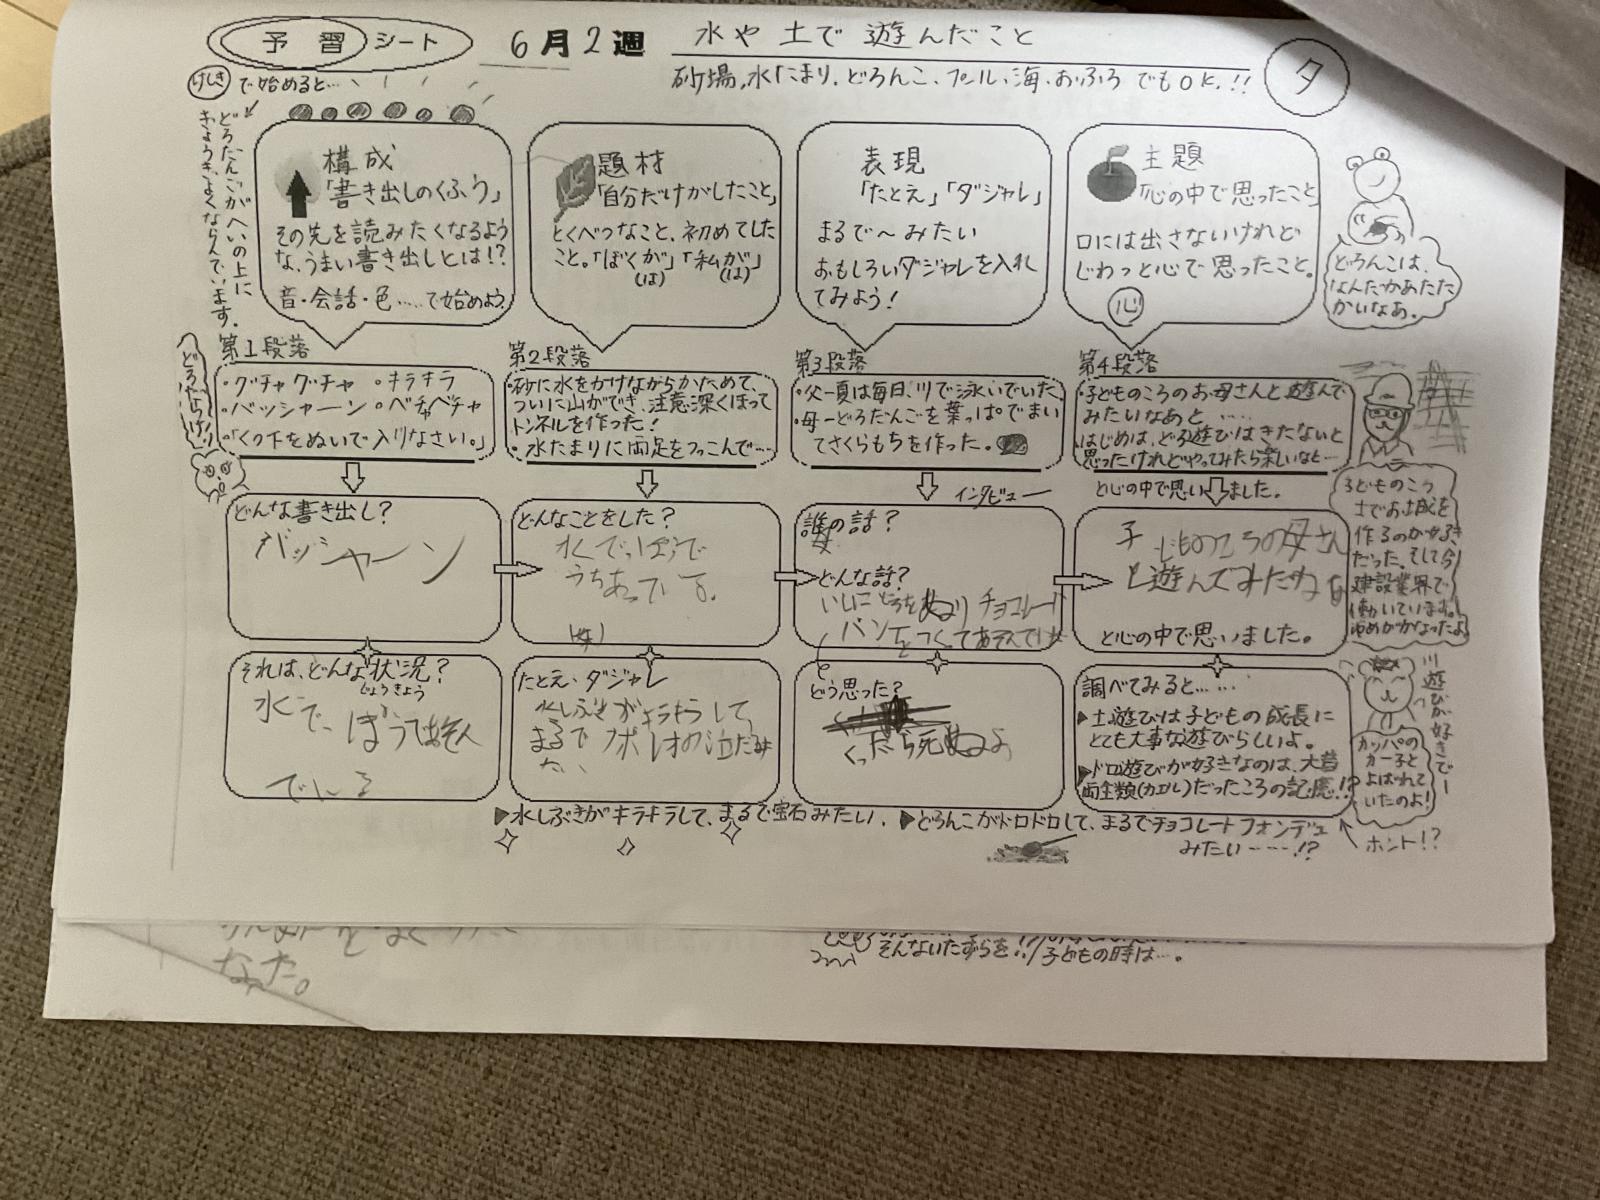 予習シート
6月2週
水や土で遊んだこと
夕
砂場、水たまり、どろんこ、プール、海、おふろでもOK!!
けしきで始めると…
どろだんごがへいの上に
きょうぎよくならんでいます。
構成
「書き出しのくふう」
その先を読みたくなるよう
な、うまい書き出しとは!?
音・会話・色……で始めよう。
題材
「自分だけがしたこと」
とくべつなこと、初めてした
こと。「ぼくが」「私が」
(は) (は)
表現
「たとえ」「ダジャレ」
まるで〜みたい
おもしろいダジャレを入れ
てみよう!
主題
「心の中で思ったこと」
口には出さないけれど
じわっと心で思ったこと。
心
どろんこは、
なんだかあたた
かいなあ。
第1段落
・グチャグチャ ・キラキラ
・バッシャーン ・ベチャベチャ
・「くつ下をぬいで入りなさい。」
第2段落
・砂に水をかけながらかためて、
ついに山ができ、注意深くほって
トンネルを作った!
・水たまりに両足をつっこんで…
第3段落
・父ー夏は毎日、川で泳いでいた。
・母ーどろだんごを葉っぱでまい
てさくらもちを作った。
第4段落
・子どものころのお母さんと遊んで
みたいなあと……
はじめは、どろ遊びはきたないと
思ったけれどやってみたら楽しいなと…
と心の中で思いました。
どんな書き出し?
バッシャーン
どんなことをした?
水でっぽうで
うちあってです。
インタビュー
誰の話?
母
どんな話?
いしにどろをぬり チョコレート
パンをつくって
子どものころの母さん
と遊んでみたいな
と心の中で思いました。
子どものころ
土でお城を
作るのが好き
だった。そして今
建設業界で
働いています。
ゆめがかなったよ
それは、どんな状況?
じょうきょう
水で
たとえ・ダジャレ
水しぶきがキラキラして
まるで
どう思った?
くったら死ぬよ
調べてみると……
▶土遊びは子どもの成長に
とても大事な遊びらしいよ。
▶ドロ遊びが好きなのは、大昔
両生類(カエル)だったころの記憶!?
川遊びが好きでー
カッパの
カー子と
よばれて
いたのよ!
▶水しぶきがキラキラして、まるで宝石みたい。 ▶どろんこがドロドロして、まるでチョコレートフォンデュ
みたい……!?
ホント!?
なった。
そんないたずらを!!
子どもの時は…。